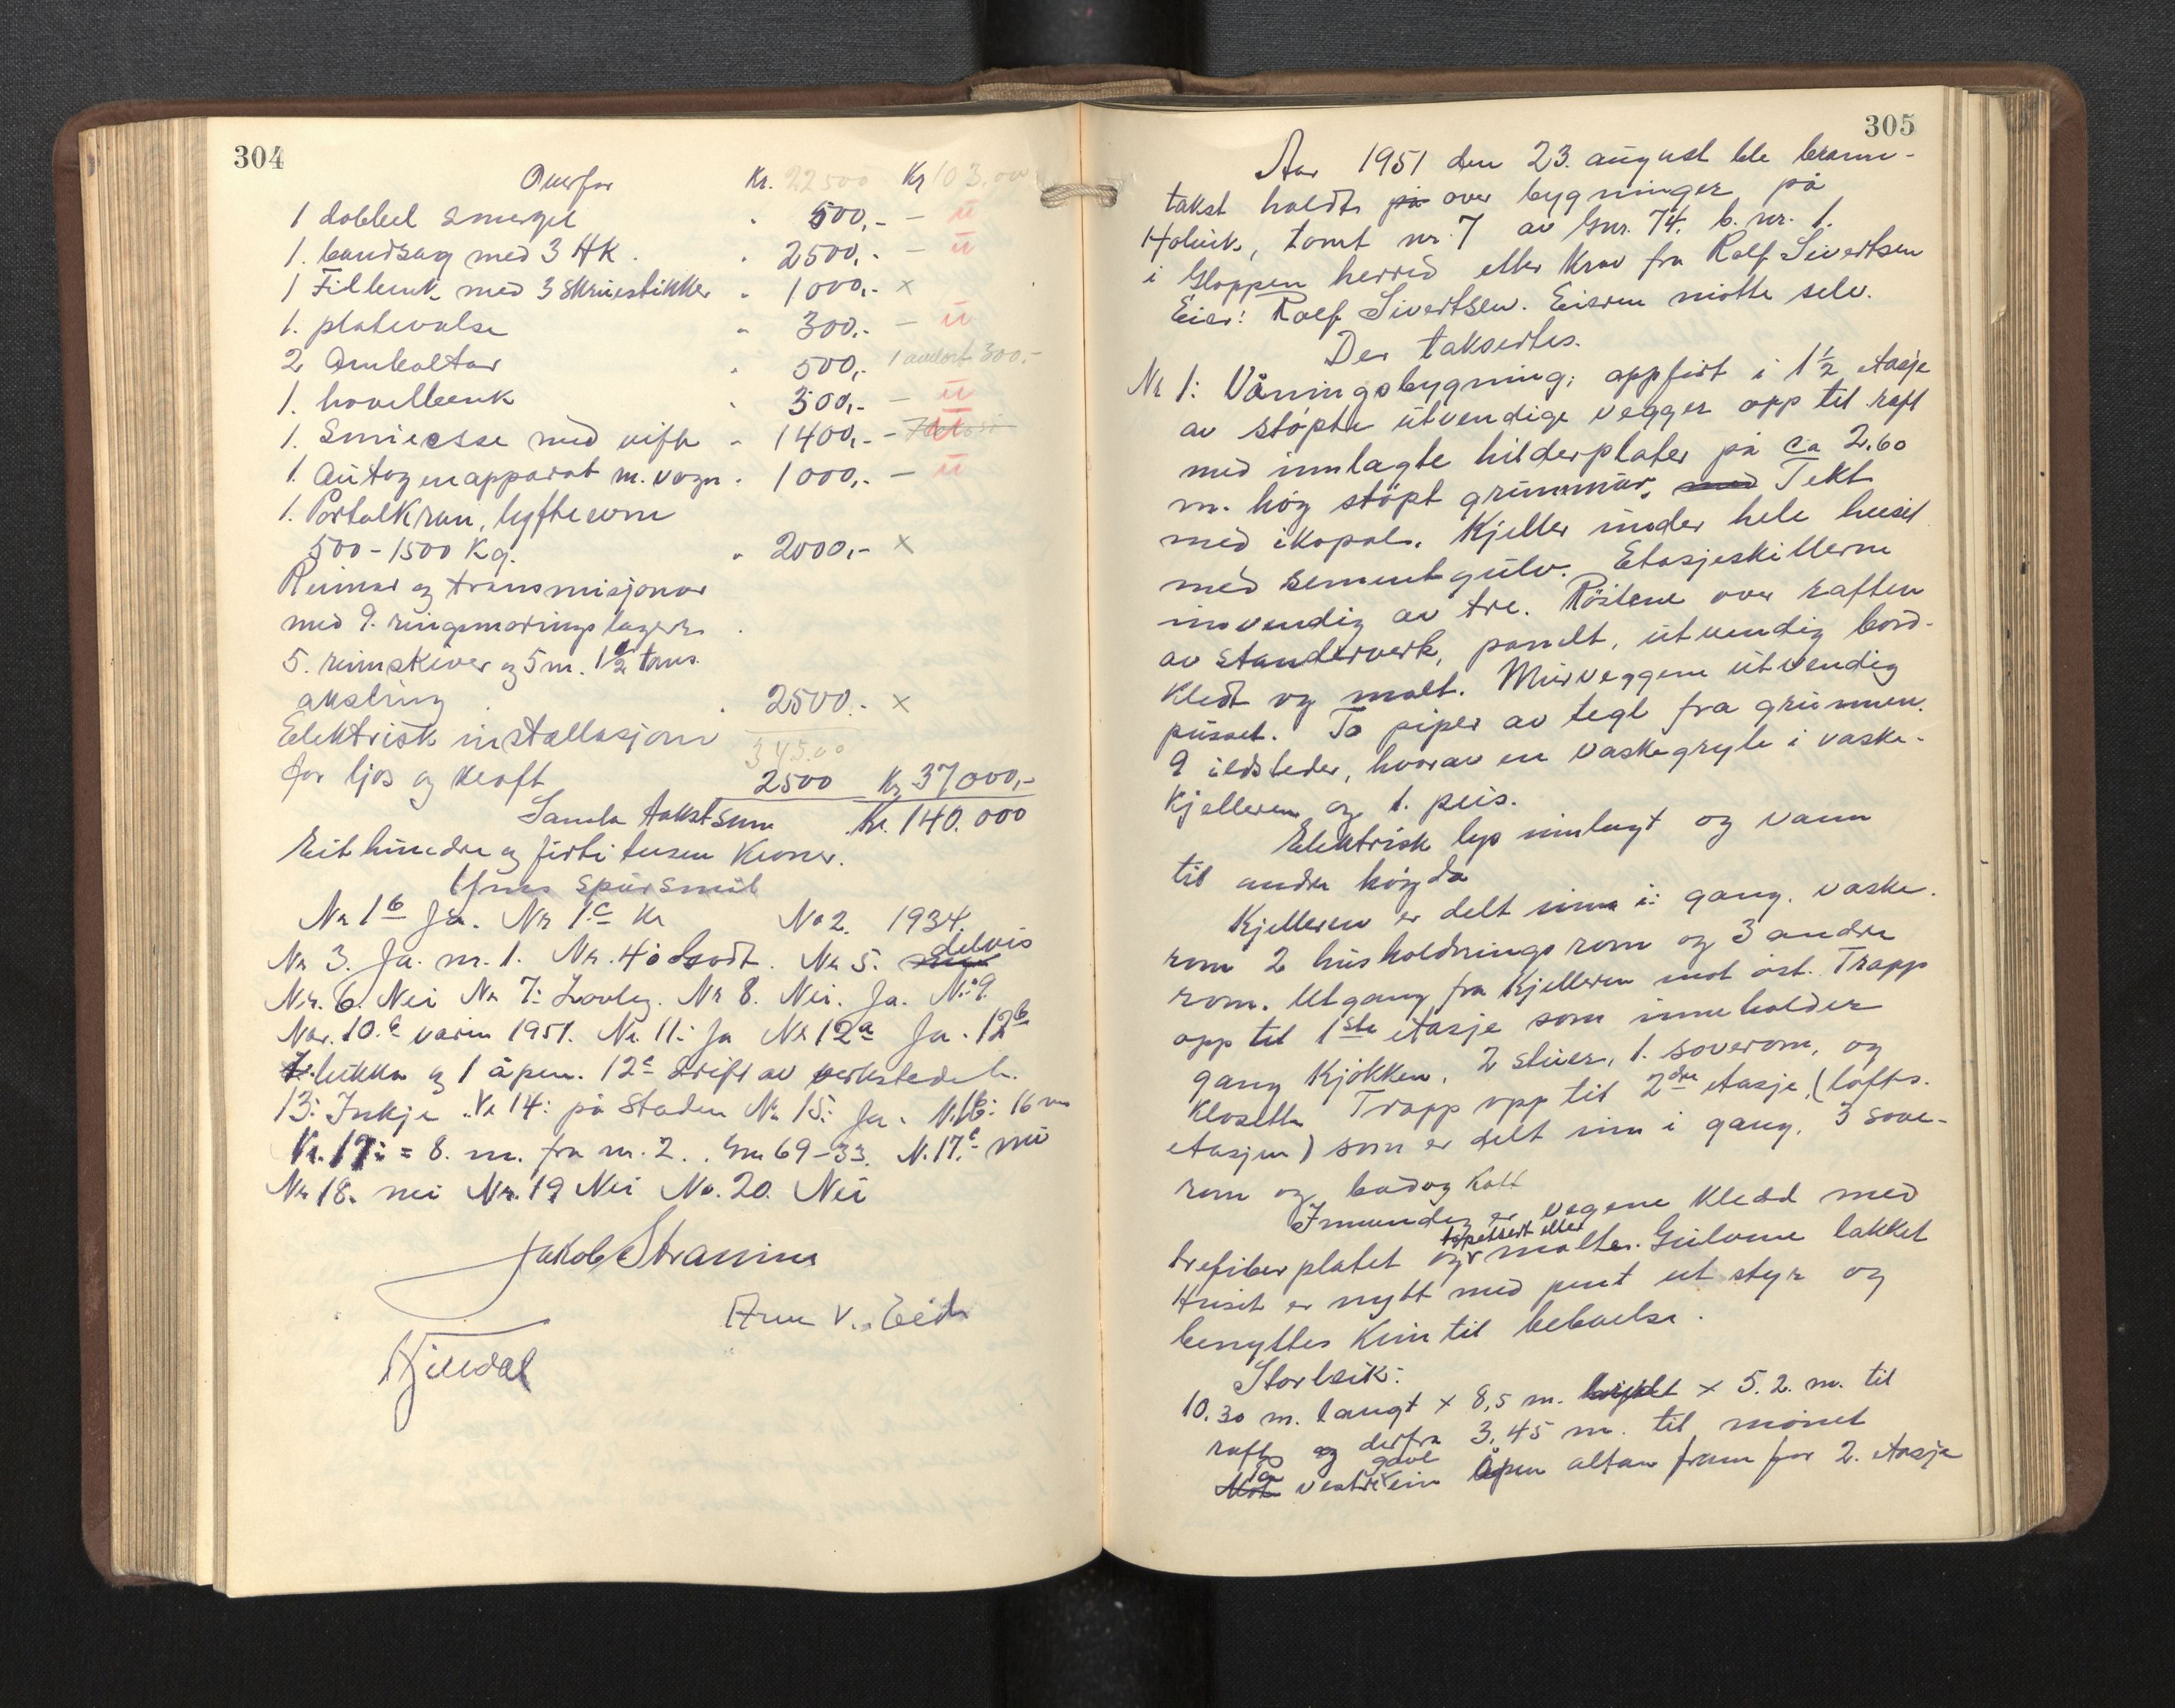 304
Overfor Kr. 22500 Kr 103.000
1 dobbel smergel " 500,- – ū
1. bandsag med 3 HK. " 2500,- – ū
1 Filbenk med 3 skruestikker " 1000,- x
1. platevalse " 300,- – ū
2 Amboltar " 500,- 1 300,-
1. hovelbenk " 300,- – ū
1. Smiesse med vifte " 1400,- – ū
1. Autogenapparat m. vogn " 1000,- – ū
1. Portalkran, lyfteevne
500-1500 Kg. " 2000,- x
Reimar og transmisjonar
med 9. ringsmørings lagere
5. reimskiver og 5 m. 1 1/2 toms
aksling " 2500.- x
Elektrisk installasjon 34500
for ljos og kraft 2500 Kr 37000,-
Samla takstsum Kr. 140.000
Eit hundre og førti tusen kroner.
Ymes spursmål
Nr 1b Ja. Nr 1.c Kr No 2. 1934.
Nr 3. Ja. nr. 1. Nr. 4: Godt. Nr 5. delvis
Nr. 6. Nei Nr 7: Lovleg. Nr 8. Nei. Ja. N. 9.
Nor. 10.c varen 1951. Nr. 11: Ja Nr 12a Ja. 12b
lukka og 1 åpen. 12c drift av verkstedet.
13: Inkje. Nr 14: på staden Nr 15: Ja. N.16: 16 m
Nr. 17: = 8. m. fra nr. 2. Gnr 69-33. N. 17.c nei
Nr 18. nei Nr. 19 Nei No. 20. Nei
Jakob Straume
Arne V. Eide
305
Aar 1951 den 23. august ble brann-
takst holdt på over bygninger på
tomt nr. 7 av Gnr. 74. b. nr. 1.
i Gloppen herred etter krav fra Rolf Sivertsen
Eier: Rolf Sivertsen. Eieren møtte selv.
Der taksertes.
Nr 1: Våningsbygning, oppført i 1 1/2 etasje
av støpte utvendige vegger opp til raft
med innlagte hilderplater på ca 2.60
m. høg støpt grunnmur, med Tekt
med ikopal. Kjeller under hele huset
med sementgulv. Etasjeskillerne
innvendig av tre. Røstene over raften
av standerverk, panelt, utvendig bord-
kledt og malt. Murveggene utvendig
pusset. To piper av tegl fra grunnen.
9 ildsteder, hvorav en vaskegryte i vaske-
kjelleren og 1. peis.
Elektrisk lys innlagt og vann
til andre høgda
Kjelleren er delt inn i: gang. vaske-
rom 2 husholdnings rom og 3 andre
rom. Utgang fra kjelleren mot øst. Trapp
opp til 1ste etasje som inneholder
gang Kjøkken, 2 stuer, 1. soverom, og
klosett. Trapp opp til 2dre etasje, (lofts-
etasjen) som er delt inn i gang, 3 sove-
rom og bad og Kott
Innvendig er vegene kledd med
trefiberplater og tapetsert eller malte. Gulvene lakket
Huset er nytt med pent utstyr og
benyttes kun til beboelse.
Storleik:
10.30 m. langt x 8,5 m. breidt x 5.2. m. til
raft og derfra 3.45 m. til mønet
Mot På vestre gavl ein åpen altan fram for 2. etasje